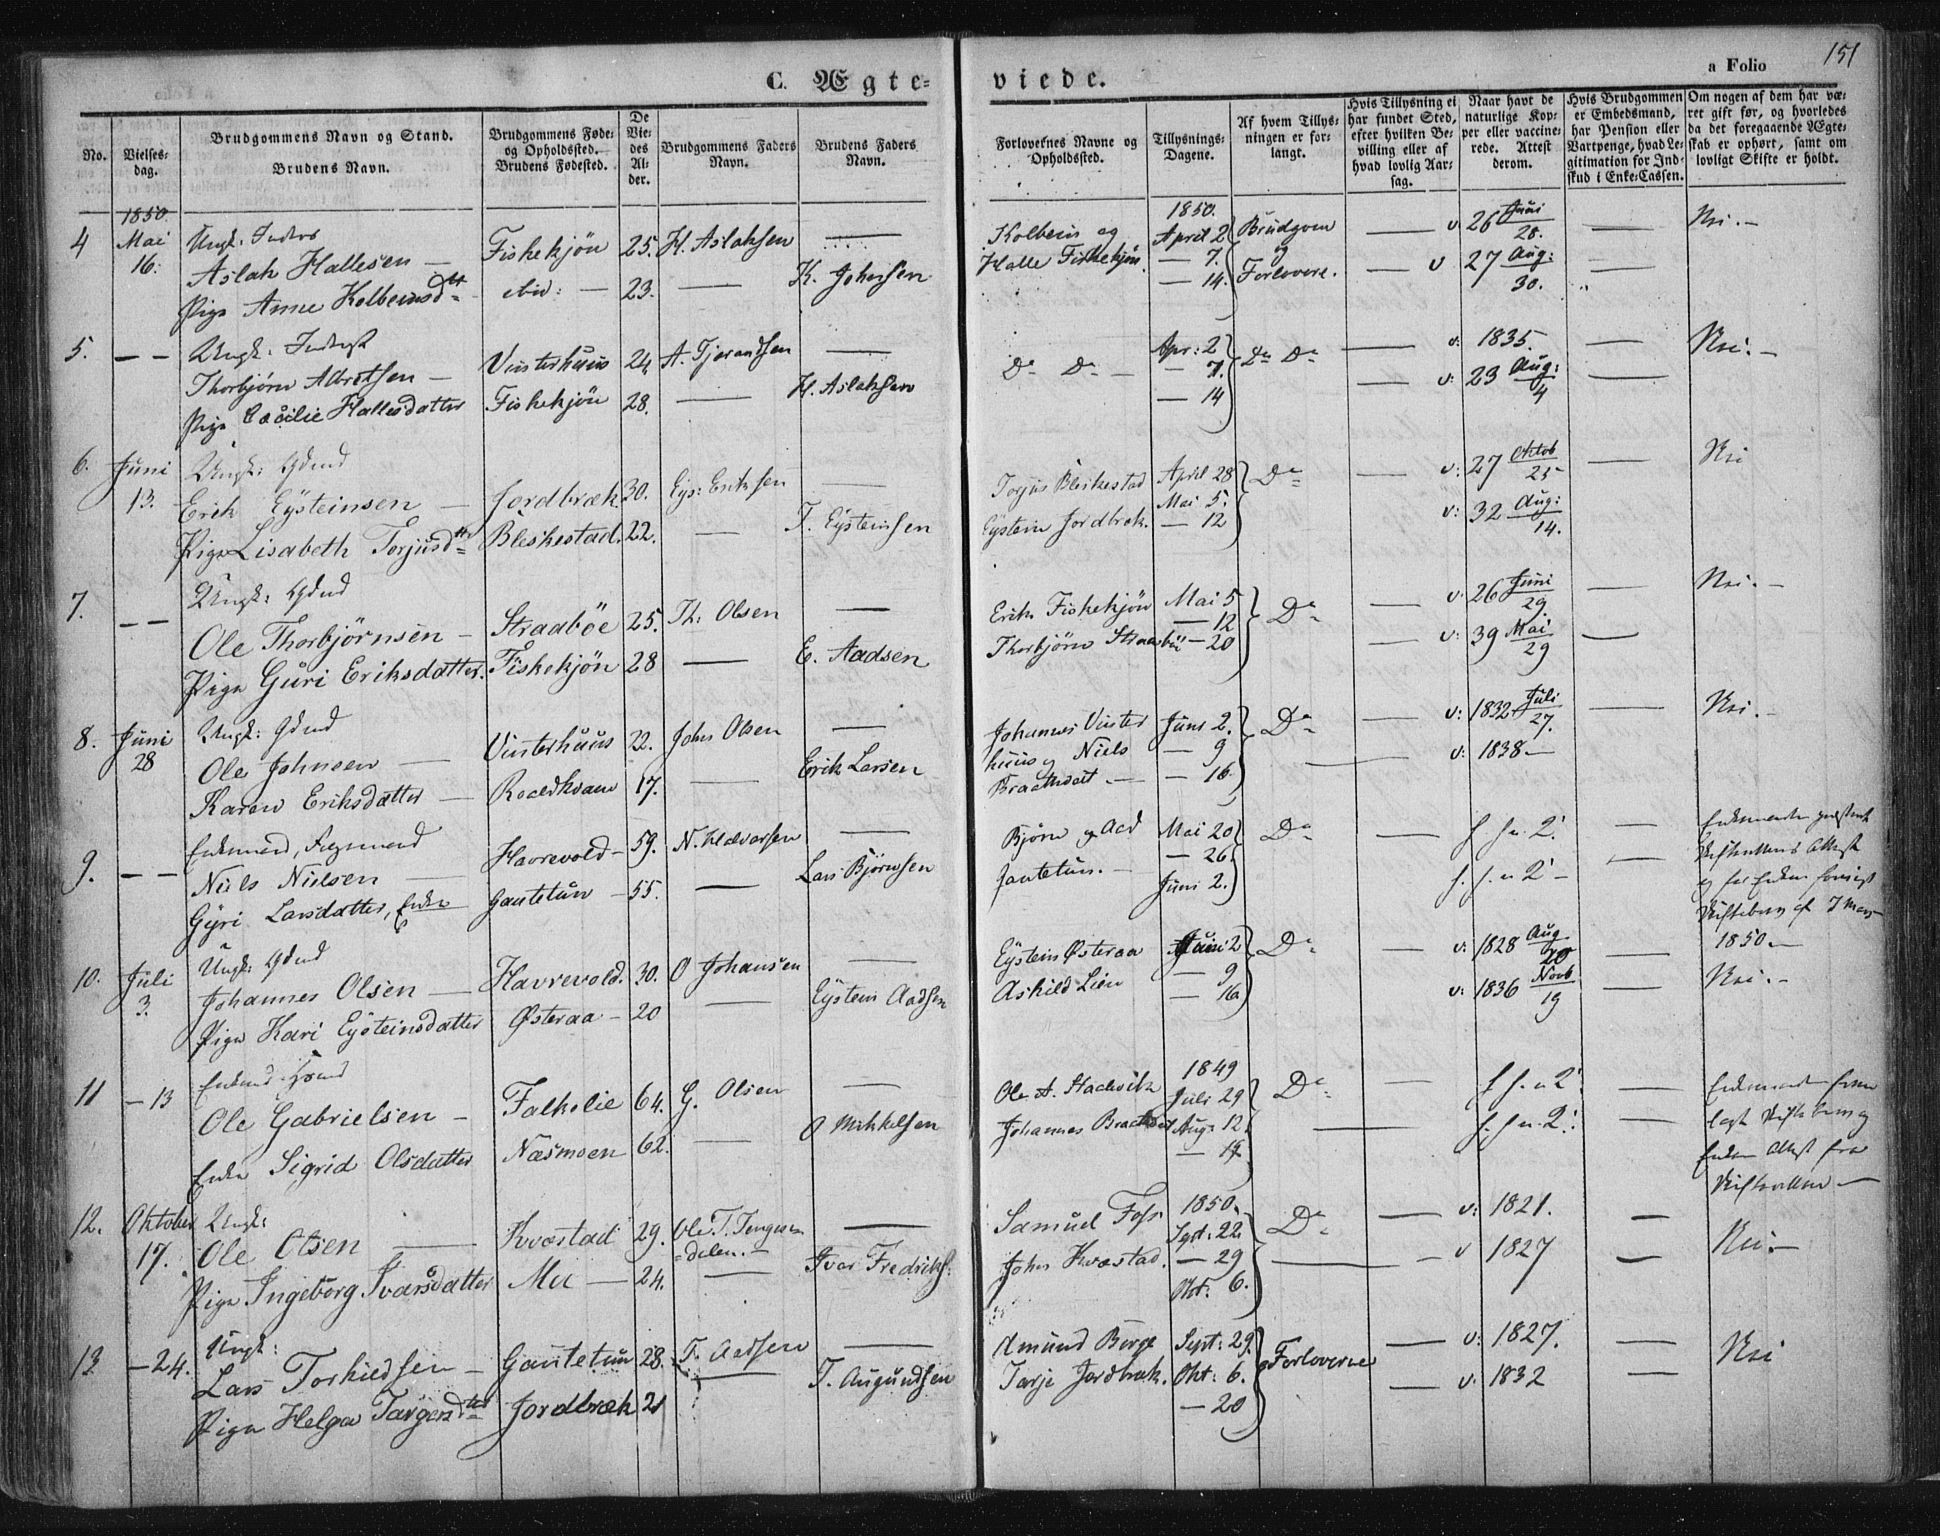 151
C. Ægte= viede. a Folio
No.
Vielses=
dag.
Brudgommens Navn og Stand.
Brudens Navn.
Brudgommens Føde=
og Opholdssted.
Brudens Fødested.
De
Vie=
des
Al=
der.
Brudgommens Faders
Navn.
Brudens Faders
Navn.
Forlovernes Navne og
Opholdssted.
Tillysnings=
Dagene.
Af hvem Tillys=
ningen er for=
langt.
Hvis Tillysning ei
har fundet Sted,
efter hvilken Be=
villing eller af
hvad lovlig Aar=
sag.
Naar havt de
naturlige Kop=
per eller vaccine=
rede. Attest
derom.
Hvis Brudgommen
er Embedsmand,
har Pension eller
Vartpenge, hvad Le=
gitimation for Ind=
skud i Enke=Cassen.
Om nogen af dem har væ=
ret gift før, og hvorledes
da det foregaaende Ægte=
skab er ophørt, samt om
lovligt Skifte er holdt.
1850. 1850.
4 Mai Ungk: Fiskekjön 25. H. Aslaksen — Kolbens og April 2 Brudgom — v 26 Juni/28. — Nei. —
16. Aslak Hallesen — Halle Fiskekjön — 7. og
Pige Anne Kolbensdtr ibid: — 23. — K. Johnsen — 14. Forlovere. — v 27 Aug:/30. —
5. — — Ungk: Inderst Vinterhuus 24 A. Tjerandsen — Do Do — Apr: 2 Do Do — v: 1835. — Nei. —
Thorbjörn Albretsen — — 7.
Pige Cæcilie Hallesdatter Fiskekjön 28. — H. Aslaksen — 14 — v: 23 Aug:/4 —
6. Juni Ungk: Gdmd Jordbræk 30. Eys: Eriksen — Torjus Bleskestad April 28 Do — v: 27 Oktob/25 — Nei
13. Erik Eysteinsen — Mai 5.
Pige Lisabeth Torjusdtr Bleskestad. 22. — T. Eysteinsen Eystein Jordbræk. — 12 v: 32 Aug:/14.
7. — — Ungk: Gdmd Straaböe 25. Th: Olsen — Erik Fiskekjön Mai 5 Do — v: 26 Juni/29. — Nei. —
Ole Thorbjörnsen — — 12
Pige Guri Eriksdatter. Fiskekjön 28 — E. Aadsen Thorbjörn Straaböe — 20 — v: 39 Mai/29 —
8. Juni Ungk: Gdmd Vinterhuus 22. John Olsen — Johannes Vinter Juni 2. Do — v: 1832 Juli/27. — Nei. —
28 Ole Johnsen — huus og Niels — 9
Karen Eriksdatter — Roaldkvam 17. — Erik Larsen Braathveit. — — 16. — v: 1838 —
9. — — Enkemand, Havrevold — 59. N. Halvorsen — Björn og Aad Mai 20 Do — f. f. n. 2. —
Niels Nielsen — — 26. Skifterettens Attest
Gÿri Larsdatter, Enke Gautetun — 55. — Lars Björnsen Gautetun. — Juni 2. f. f. n 2 — —
1850. —
10. Juli Ungk: Gdmd Havrevold. 30. O Johansen — Eystein Østeraa Juni 2 Do — v: 1828 Aug/20 — Nei. —
3. Johannes Olsen — — 9
Pige Kari Eysteinsdatter Østeraa — 20 — Eystein Aadsen Askild Lien — 16 v: 1836 Novb/19 —
11 — 13 Enkemd Gdmd Falkelie 64. G. Olsen — Ole A. Stadvik 1849 Do — f. f. n 2. —
Ole Gabrielsen — Juli 29
Enke Sigrid Olsdatter Næsmoen 62. — O Mikkelsen Johannes Braathveit Aug: 12 — f. f. n. 2. —
— 19. Enken Attest fra
Skifteretten —
12. Oktober Ungk: Kvæstad 29. Ole T. — Samuel Foss 1850. Do — v: 1821. — Nei. —
17. Ole Olsen — =dalen. — Sept: 22.
Pige Ingeborg Ivarsdatter Mæ — 24. — Ivar Fredriks: John Kvæstad. — 29 — v 1827 —
Okt: 6.
13. — 24. Ungk: Gautetun 28. T. Aadsen — Amund Berge Sept: 29. Forloverne — v: 1827. — Nei
Lars Torkildsen — Okt: 6.
Pige Helga Targersdtr Jordbræk 21 — T. Augundsen Tarje Jordbræk. — 20 — v: 1832 —